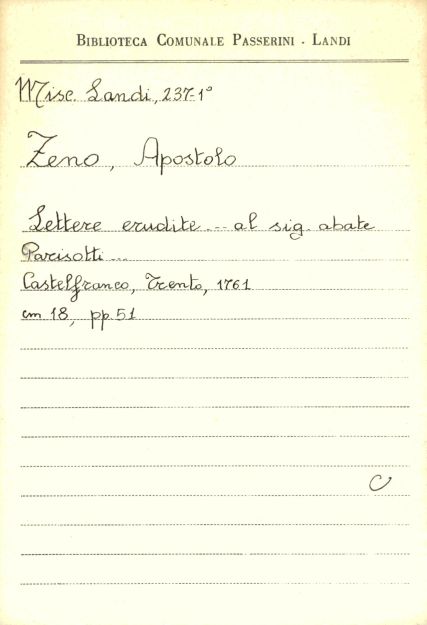 BIBLIOTECA COMUNALE PASSERINI - LANDI
Misc. Landi, 237-1°
Zeno, Apostolo
Lettere erudite... al sig. abate
Parisotti...
Castelfranco, Trento, 1761
cm 18, pp 51
C